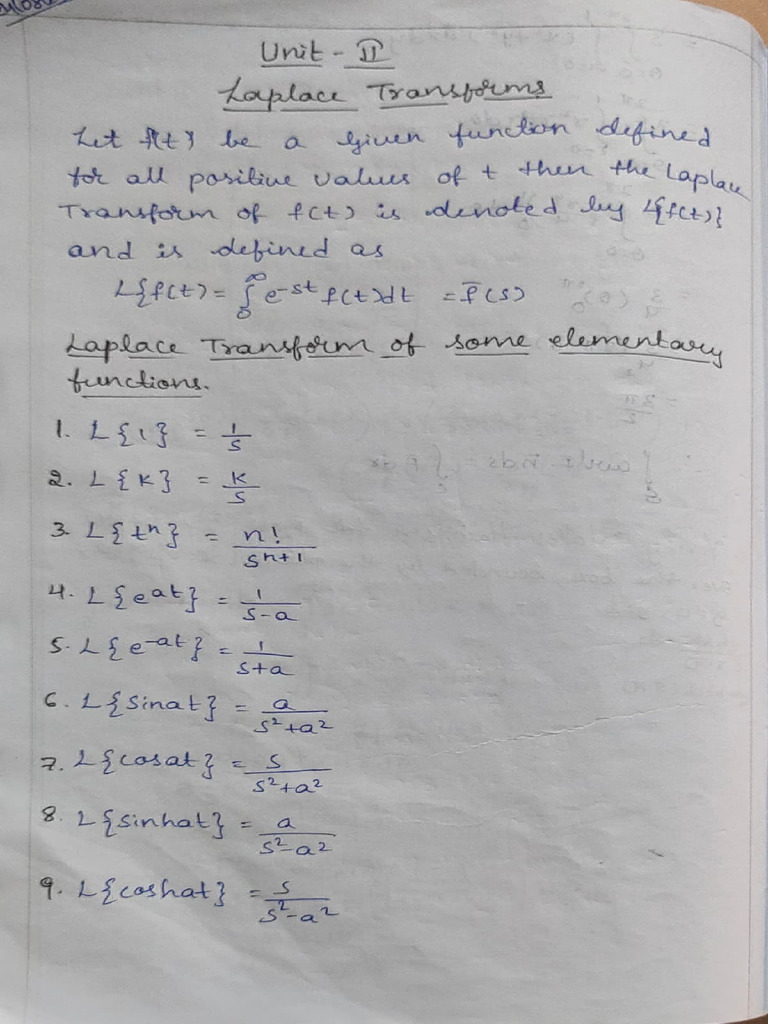 Unit - II
Laplace Transforms
Let f(t) be a given function defined
for all positive values of t then the Laplace
Transform of f(t) is denoted by L{f(t)}
and is defined as
L{f(t) = ∫₀^∞ e^-st f(t)dt = f̄(s)
Laplace Transform of some elementary
functions.
1. L{1} = 1/s
2. L{K} = K/s
3. L{t^n} = n!/s^n+1
4. L{e^at} = 1/s-a
5. L{e^-at} = 1/s+a
6. L{sinat} = a/s²+a²
7. L{cosat} = s/s²+a²
8. L{sinhat} = a/s²-a²
9. L{coshat} = s/s²-a²